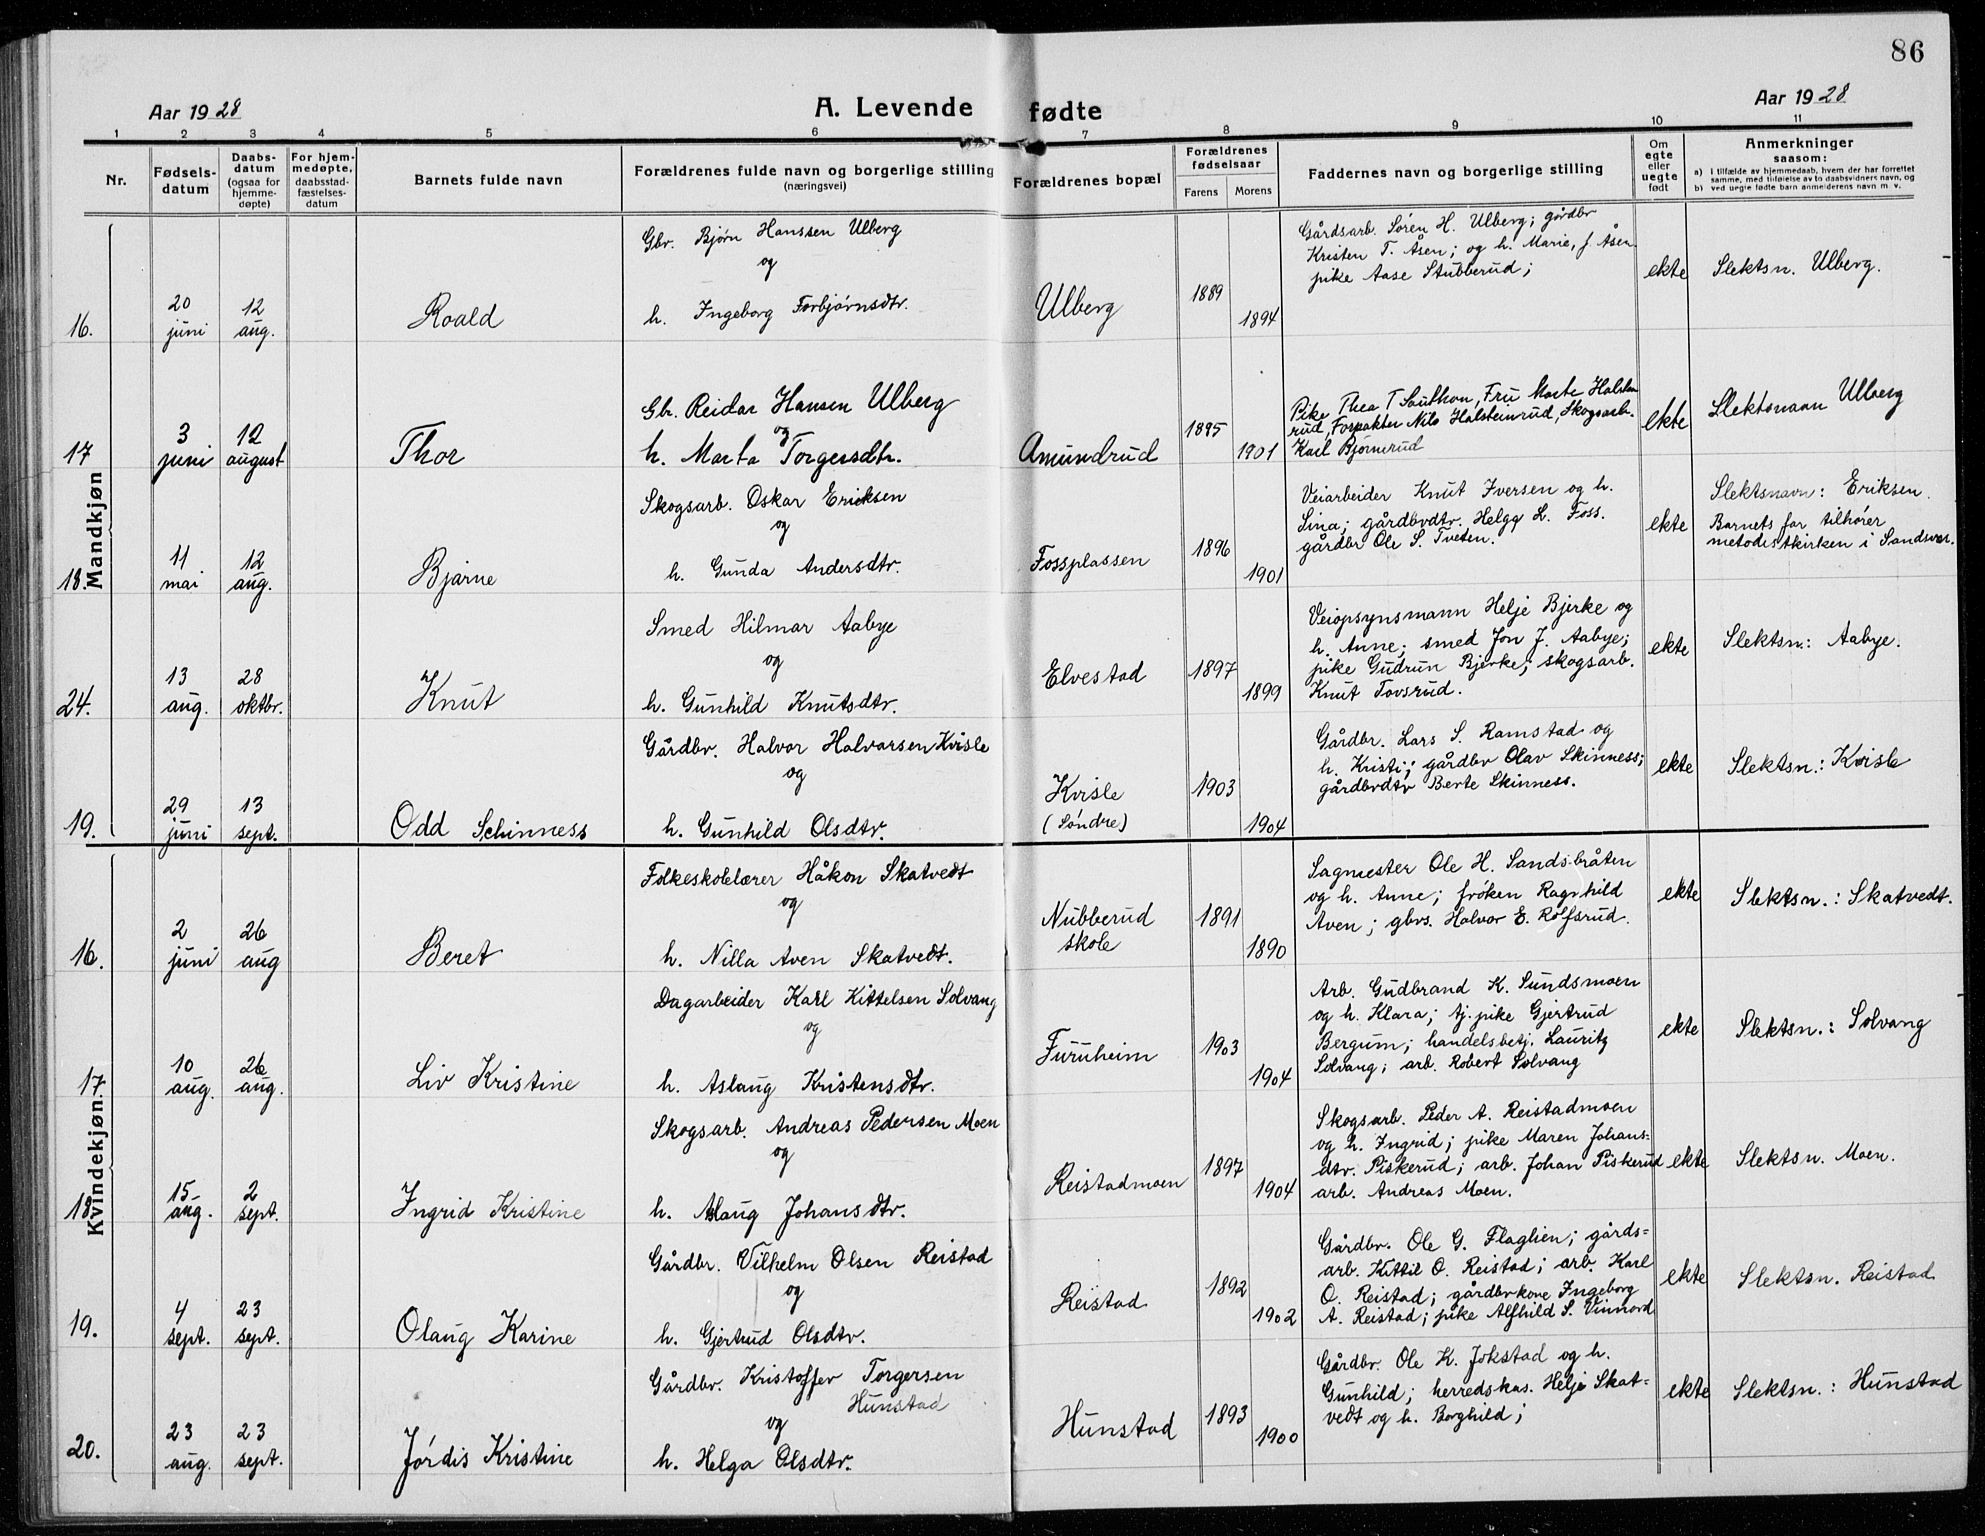 86
Aar 1928
A. Levende fødte
Aar 1928
1 2 3 4 5 6 7 8 9 10 11
Nr.
Fødsels-
datum
Daabs-
datum
(ogsaa for
hjemme-
døpte)
For hjem-
medøpte,
daabsstad-
fæstelses-
datum
Barnets fulde navn
Forældrenes fulde navn og borgerlige stilling
(næringsvei)
Forældrenes bopæl
Forældrenes
fødselsaar
Farens Morens
Faddernes navn og borgerlige stilling
Om
egte
eller
uegte
født
Anmerkninger
saasom:
a) I tilfælde av hjemmedaab, hvem der har forrettet
samme, med tilføielse av to daabsvidners navn, og
b) ved uegte fødte barn anmelderens navn m. v.
Mandkjøn
16.
20
juni
12
aug.
Roald
Gbr. Bjørn Hanssen Ulberg
og
h. Ingeborg Torbjørnsdtr.
Ulberg
1889
1894
Gårdsarb. Søren H. Ulberg; gårdbr
Kristen T. Åsen; og h. Marie, f. Åsen
pike Aase Stubberud;
ekte
Slektsn. Ulberg.
17
3
juni
12
august
Thor
Gbr. Reidar Hansen Ulberg
og
h. Marta Torgersdtr.
Amundrud
1895
1901
Pike Thea T. , Fru Marte Halstein
rud, Forpakter Nils Halsteinrud, Skogsarb.
Karl Bjørnerud
ekte
Slektsnavn Ulberg
18.
11
mai
12
aug.
Bjarne
Skogsarb. Oskar Eriksen
og
h. Gunda Andersdtr.
Fossplassen
1896
1901
Veiarbeider Knut Iversen og h.
Sina; gårdbrdtr. Helga L. Foss.
gårdbr Ole S. Tveten.
ekte
Slektsnavn: Eriksen.
Barnets far tilhører
metodistkirken i Sandsvær.
24.
13
aug.
28
oktbr.
Knut
Smed Hilmar Aabye
og
h. Gunhild Knutsdtr.
Elvestad
1897
1899
Veiopsynsmann Helje Bjerke og
h. Anne; smed Jon J. Aabye;
pike Gudrun Bjerke; skogsarb.
Knut Tovsrud.
ekte
Slektsn.: Aabye.
19.
29
juni
13
sept.
Odd Schinness
Gårdbr. Halvor Halvorsen Kvisle
og
h. Gunhild Olsdtr.
Kvisle
(Søndre)
1903
1904
Gårdbr. Lars S. Ramstad og
h. Kristi; gårdbr Olav Skinness;
gårdbrdtr Berte Skinness.
ekte
Slektsn.: Kvisle
Kvindekjøn.
16.
2
juni
26
aug
Beret
Folkeskolelærer Håkon Skatvedt
og
h. Nilla Aven Skatvedt.
Nubberud
skole
1891
1890
Sagmester Ole H. Sandsbråten
og h. Anne; frøken Ragnhild
Aven; gbrs. Halvor E. Rolfsrud.
ekte
Slektsn.: Skatvedt.
17
10
aug.
26
aug.
Liv Kristine
Dagarbeider Karl Kittelsen Solvang
og
h. Aslaug Kristensdtr.
Furuheim
1903
1904
Arb. Gudbrand K. Sundsmoen
og h. Klara; tj. pike Gjertrud
Bergum; handelsbetj. Lauritz
Solvang; arb. Robert Solvang
ekte
Slektsn.: Solvang
18.
15
aug.
2
sept.
Ingrid Kristine
Skogsarb. Andreas Pedersen Moen
og
h. Aslaug Johansdtr.
Reistadmoen
1897
1904
Skogsarb. Peder A. Reistadmoen
og h. Ingrid; pike Maren Johans=
dtr. Piskerud; arb. Johan Piskerud
arb. Andreas Moen.
ekte
Slektsn. Moen.
19.
4
sept.
23
sept.
Olaug Karine
Gårdbr. Vilhelm Olsen Reistad
og
h. Gjertrud Olsdtr.
Reistad
1892
1902
Gårdbr. Ole G. Flaglien; gårds=
arb. Kittil O. Reistad; arb. Karl
O. Reistad; gårdbrkone Ingeborg
A. Reistad; pike Alfhild S. Vinnord
ekte
Slektsn. Reistad
20.
23
aug.
23
sept.
Jørdis Kristine
Gårdbr. Kristoffer Torgersen
Hunstad
og
h. Helga Olsdtr.
Hunstad
1893
1900
Gårdbr. Ole K. Jokstad og h.
Gunhild; herredskas. Helje Skat=
vedt og h. Borghild;
ekte
Slektsn.: Hunstad